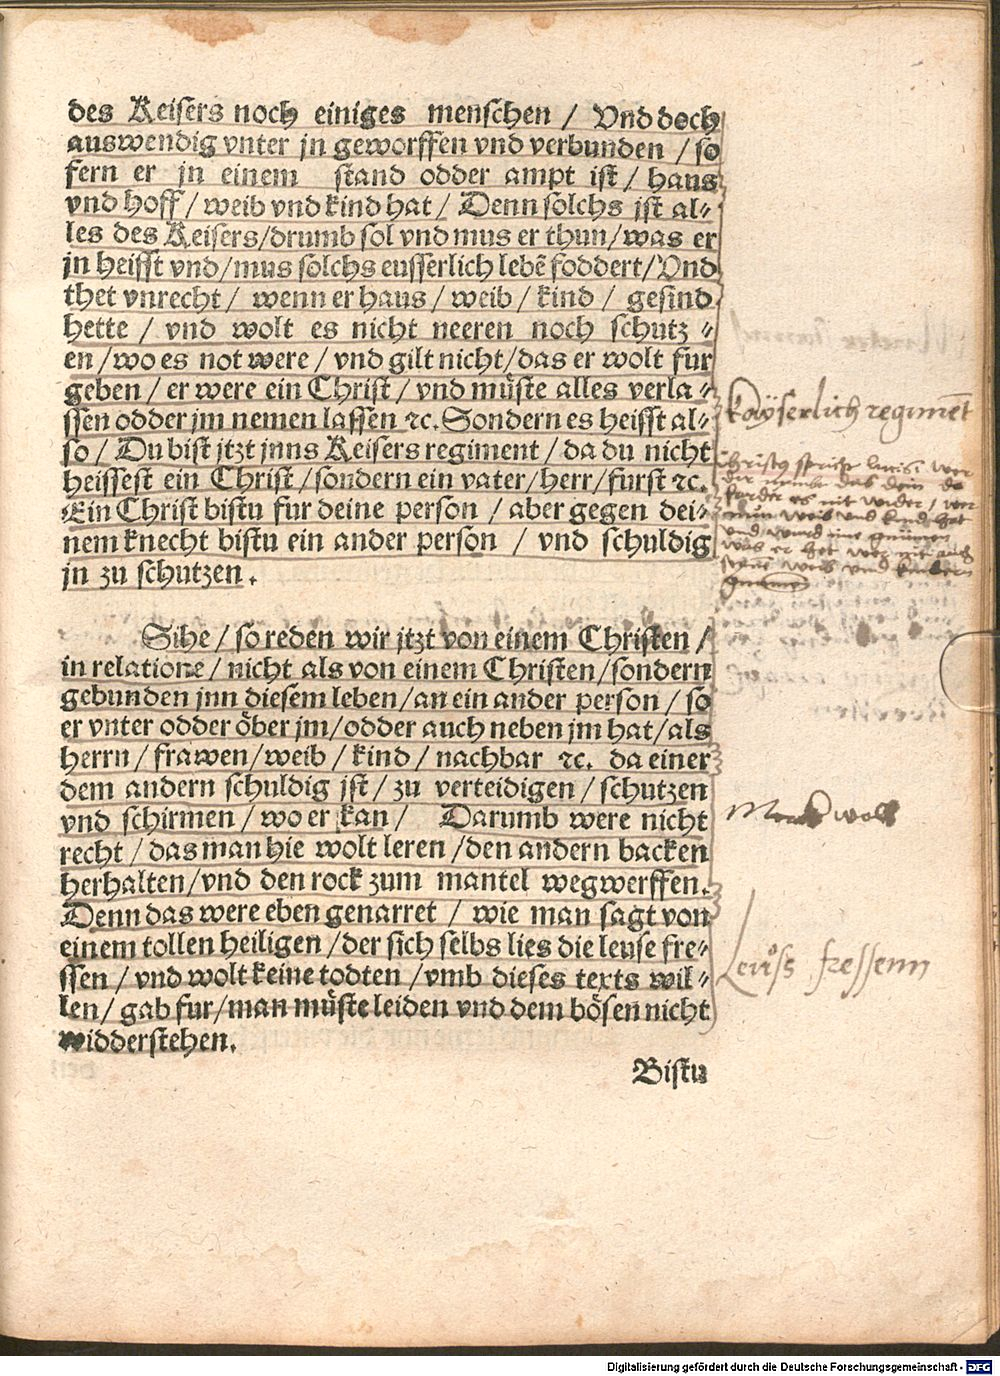 des Keisers noch einiges menschen / Vnd doch
auswendig vnter jn geworffen vnd verbunden / so
fern er jn einem stand odder ampt ist / haus
vnd hoff / weib vnd kind hat / Denn solchs jst al⸗
les des Keisers / drumb sol vnd mus er thun / was er
jn heisst vnd / mus solchs eusserlich lebẽ foddert / Vnd
thet vnrecht / wenn er haus / weib / kind / gesind
hette / vnd wolt es nicht neeren noch schutz ⸗
en / wo es not were / vnd gilt nicht / das er wolt fur
geben / er were ein Christ / vnd muͤste alles verla ⸗
ssen odder jm nemen lassen ꝛc. Sondern es heisst al⸗
so / Du bist jtzt jnns Keisers regiment / da du nicht
heissest ein Christ / sondern ein vater / herr / furst ꝛc.
Ein Christ bistu fur deine person / aber gegen dei⸗
nem knecht bistu ein ander person / vnd schuldig
jn zu schutzen .
Sihe / so reden wir jtzt von einem Christen /
in relatione / nicht als von einem Christen / sondern
gebunden jnn diesem leben / an ein ander person / so
er vnter odder oͤber jm / odder auch neben jm hat / als
herrn / frawen / weib / kind / nachbar ꝛc. da einer
dem andern schuldig jst / zu verteidigen / schutzen
vnd schirmen / wo er kan / Darumb were nicht
recht / das man hie wolt leren / den andern backen
herhalten / vnd den rock zum mantel wegwerffen.
Denn das were eben genarret / wie man sagt von
einem tollen heiligen / der sich selbs lies die leuse fre⸗
ssen / vnd wolt keine todten / vmb dieses texts wil ⸗
len / gab fur / man muͤste leiden vnd dem boͤsen nicht
widderstehen.
Bistu
kayserlich regimēt
Christus spricht
weib und kind hat
was er het
weib und kinder
Merck woll
fressenn
Digitalisierung gefördert durch die Deutsche Forschungsgemeinschaft - DFG